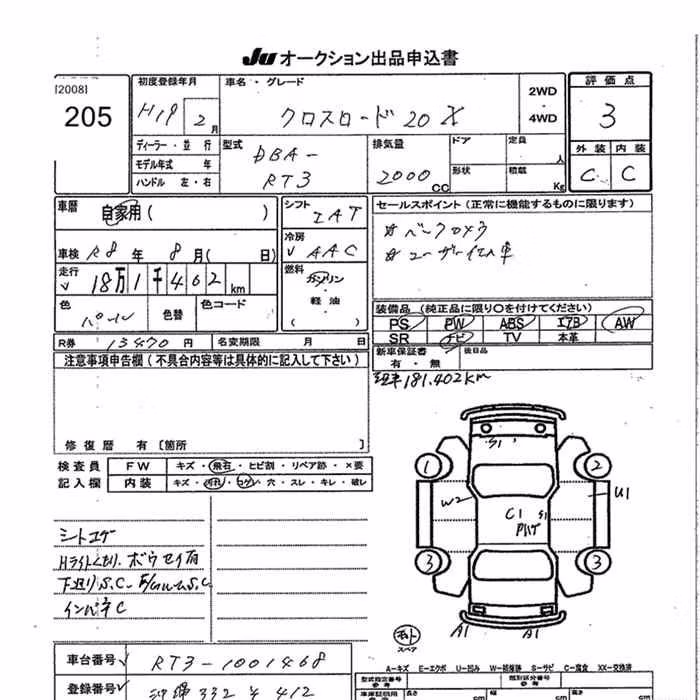 JU オークション出品申込書
[2008]
205
初度登録年月
H19 2月
車名・グレード
クロスロード 20X
2WD
・
4WD
評価点
3
外装 内装
C C
ディーラー・並行
モデル年式 年
ハンドル 左・右
型式
DBA-
RT3
排気量
2000 CC
ドア
形状
定員 人
積載 Kg
車歴
自家用( )
シフト
IAT
セールスポイント(正常に機能するものに限ります)
☆バックカメラ
☆ユーザー仕入車
車検 R8年 8月( 日)
冷房
AAC
走行
18万1千462km
燃料
ガソリン
・
軽油
( )
色
パール
色替
色コード
装備品(純正品に限り○を付けてください)
PS PW ABS エアB AW
SR ナビ TV 本革
R券 13470円
名変期限 月 日
新車保証書
有・無
後日品
注意事項申告欄(不具合内容等は具体的に記入して下さい)
181.402km
修復歴 有 [箇所 ]
検査員
記入欄
FW キズ・飛石・ヒビ割・リペア跡・×要
内装 キズ・汚れ・コゲ・穴・スレ・キレ・破レ
S1
1 2
W2 U1
C1 S1
3 3
A1 A1
スペア
シートコゲ
Hライトくもり、ボウセイ有
下廻りS.C
インパネC
車台番号 RT3-1001468
A-キズ E-エクボ U-凹み W-補修跡 S-サビ C-腐食 XX-交換済
登録番号 沖縄 332 412
型式指定番号
参考
類別区分番号
参考
長さ cm
幅 cm
高さ cm